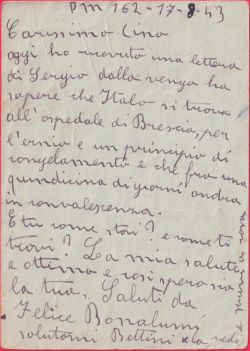 PM 162-17-8-43
Carissimo Cino
oggi ho ricevuto una lettera
di Sergio dalla vengo ha
sapere che Italo si trova
all'ospedale di Brescia, per
l'ernio e un principio di
congelamento e che fra una
quindicina di giorni andra
in convalescenza.
E tu come stai? e come ti
trovi? La mia salute
e ottima e cosi spero sia
la tua. Saluti da
Felice Bonalumi
salutami Bettini se la vedi
e